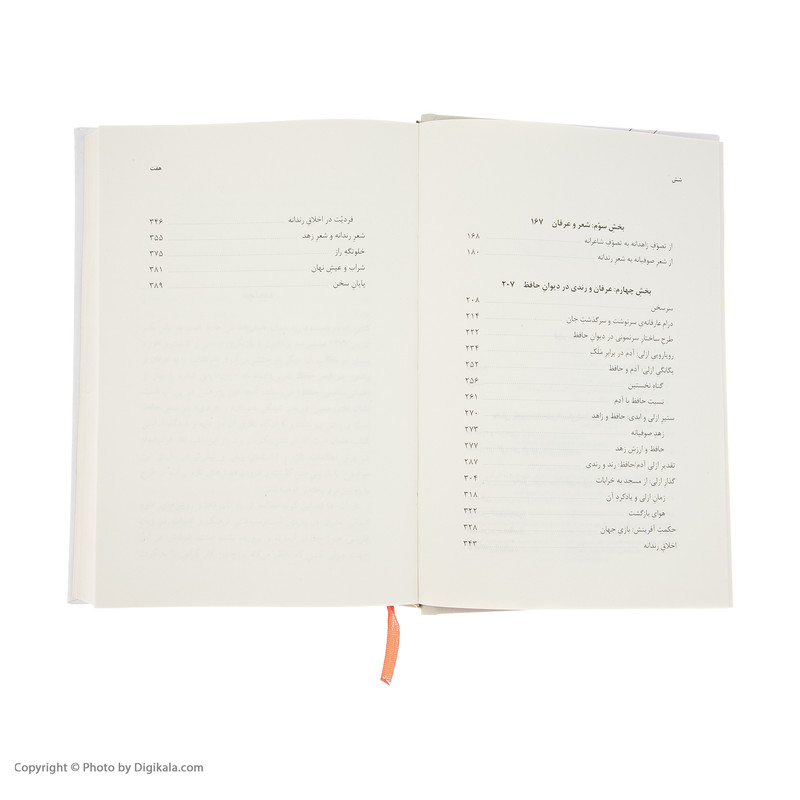 شش
بخش سوّم: شعر و عرفان ۱۶۷
از تصوّف زاهدانه به تصوّف شاعرانه ۱۶۸
از شعر صوفیانه به شعر رندانه ۱۸۰
بخش چهارم: عرفان و رندی در دیوانِ حافظ ۲۰۷
سرسخن ۲۰۸
درام عارفانه‌ی سرنوشت و سرگذشتِ جان ۲۱۴
طرح ساختارِ سرنمونی در دیوانِ حافظ ۲۲۲
رویارویی ازلی: آدم در برابرِ مَلَک ۲۳۴
یگانگیِ ازلی: آدم و حافظ ۲۵۲
گناه نخستین ۲۵۶
نسبتِ حافظ با آدم ۲۶۱
ستیزِ ازلی و ابدی: حافظ و زاهد ۲۷۰
زهدِ صوفیانه ۲۷۳
حافظ و ارزشِ زهد ۲۷۷
تقدیرِ ازلیِ آدم/حافظ: رند و رندی ۲۸۷
گذارِ ازلی: از مسجد به خرابات ۳۰۴
زمانِ ازلی و یادکردِ آن ۳۱۸
هوای بازگشت ۳۲۲
حکمتِ آفرینش: بازیِ جهان ۳۲۸
اخلاقِ رندانه ۳۴۳
هفت
فردیّت در اخلاقِ رندانه ۳۴۶
شعرِ رندانه و شعرِ زهد ۳۵۵
خلوتگهِ راز ۳۷۵
شراب و عیشِ نهان ۳۸۱
پایانِ سخن ۳۸۹
Copyright © Photo by Digikala.com